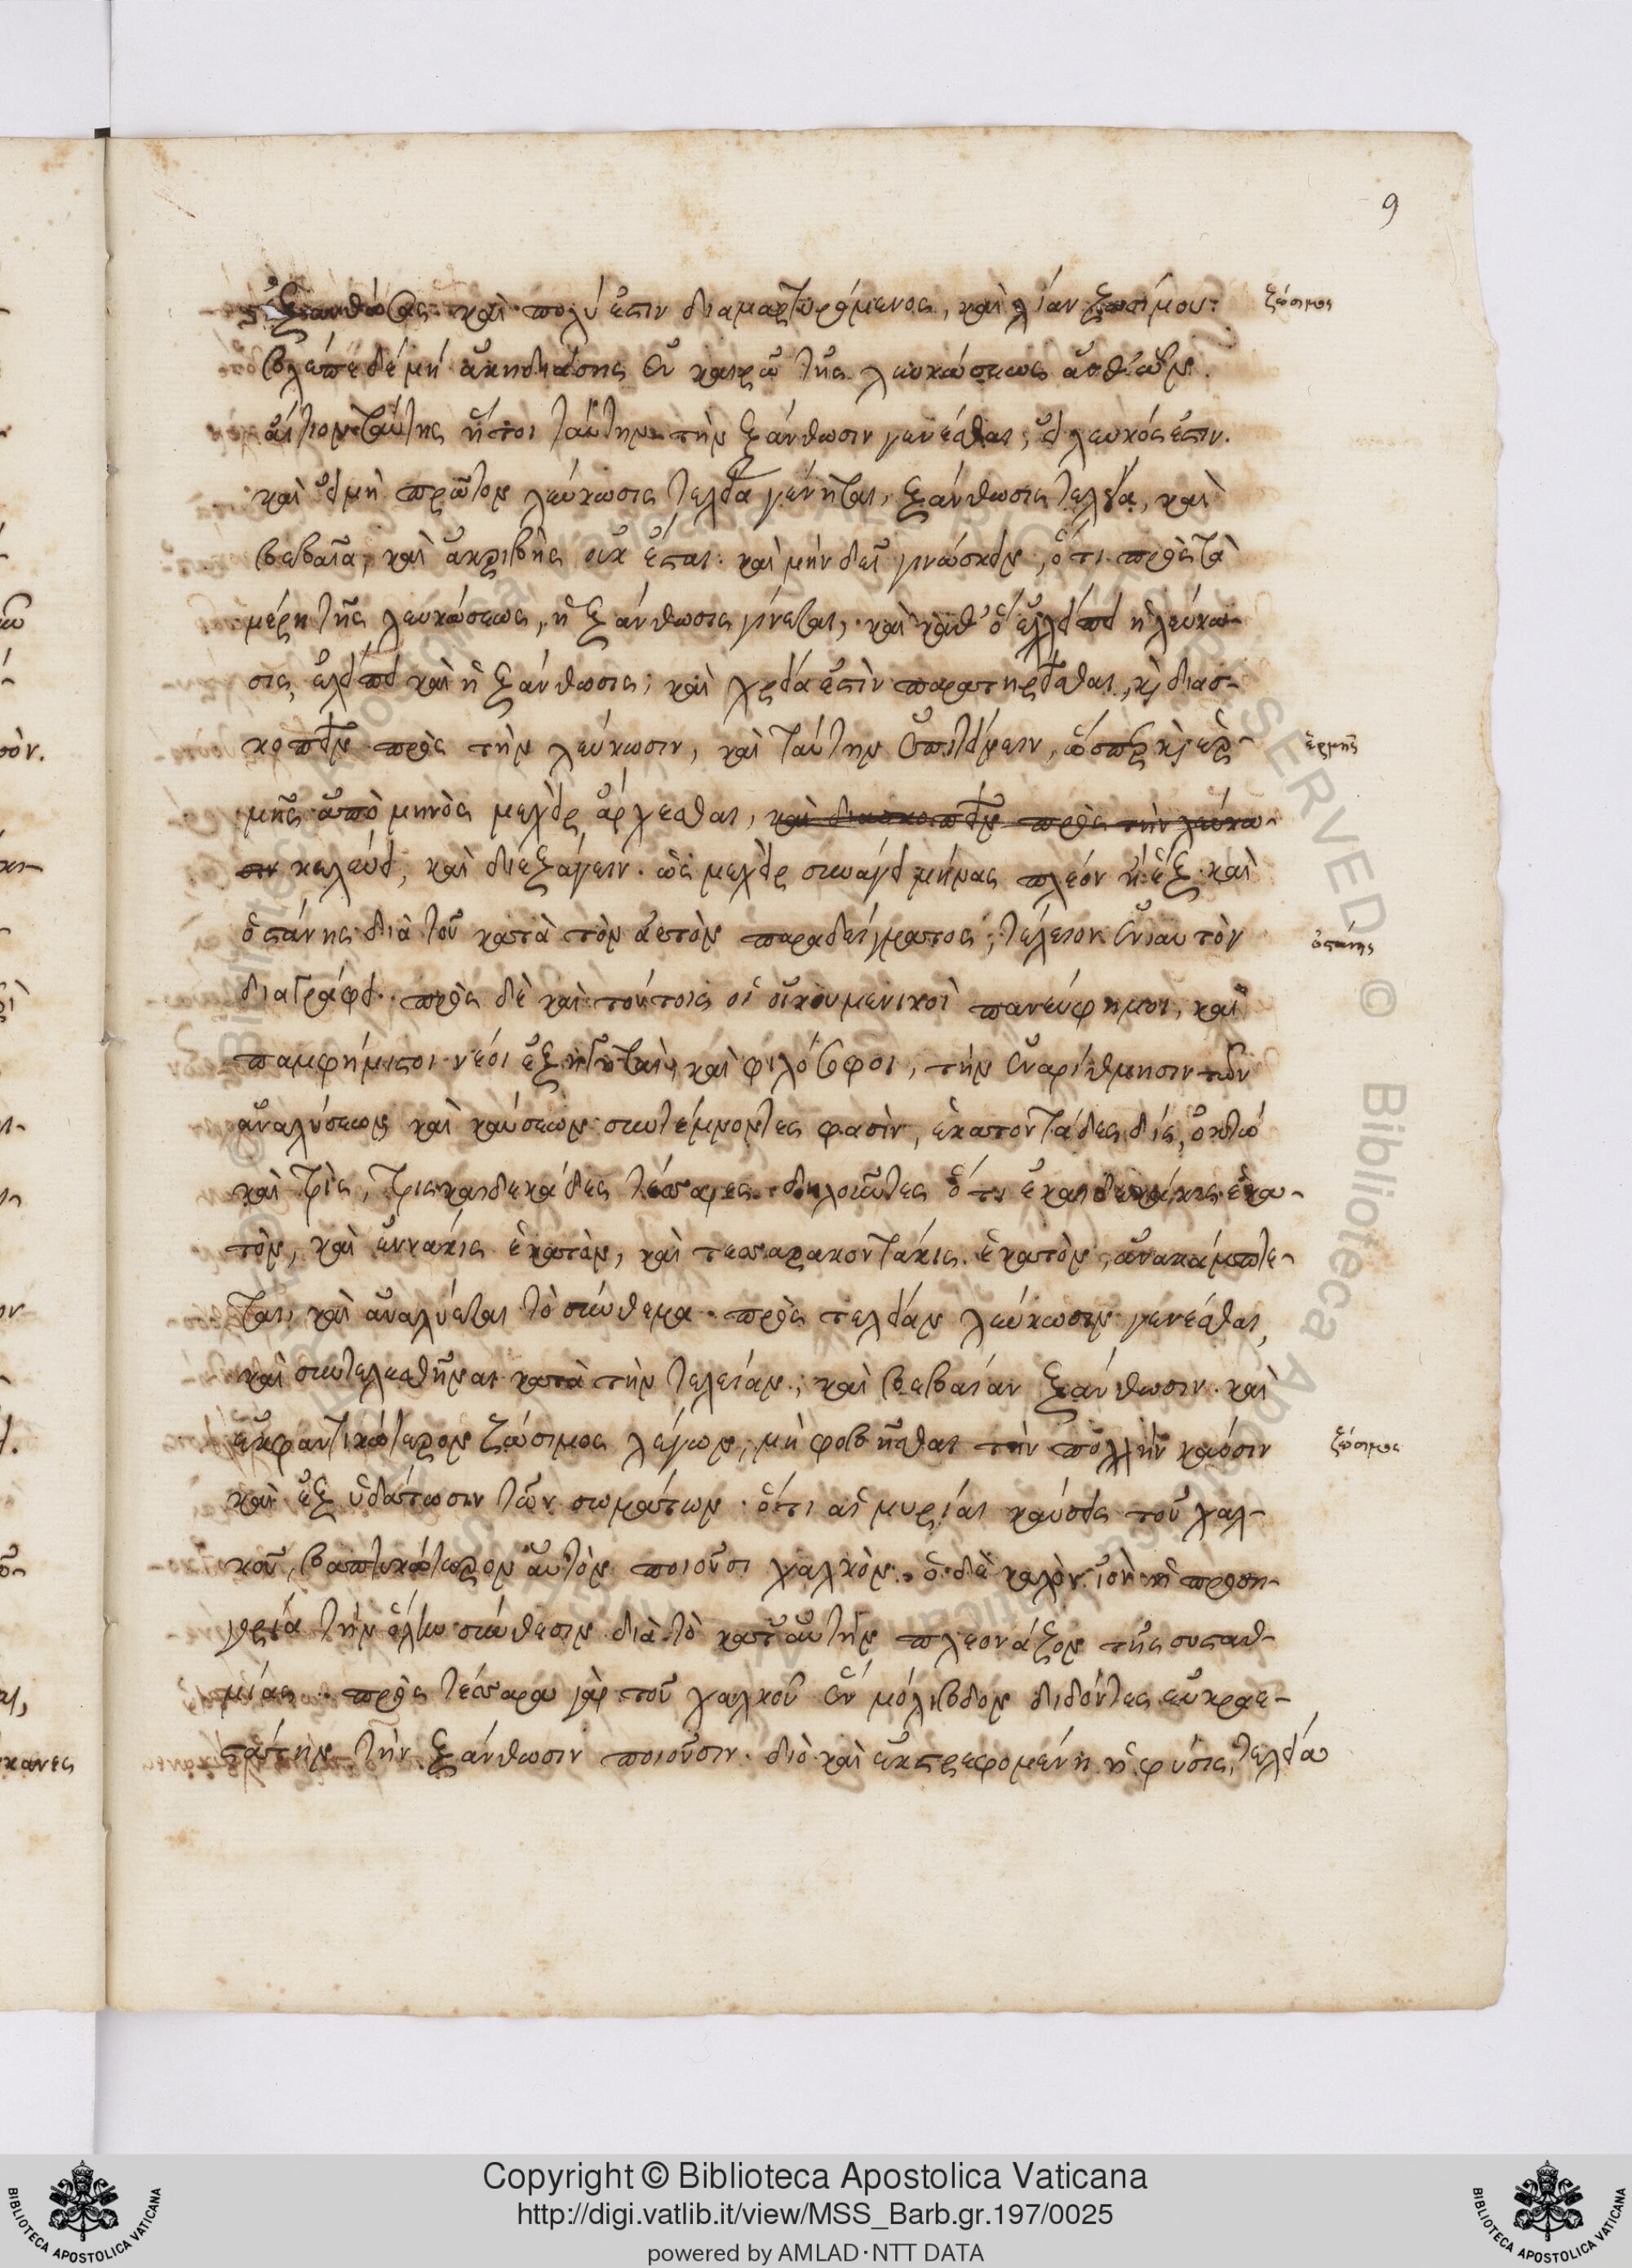 9
ἐξανθώσας καὶ πολύ ἐστιν διαμαρτυρόμενος, καὶ λίαν ζωσίμου: ζώσιμος
βλέπε δέ μή ἀκηδιάσης ἐν καιρῶ τῆς λευκώσεως
αἴτιον ταύτης ἤτοι ταύτην τὴν ξάνθωσιν γενέσθαι, εἰ λευκός ἐστιν.
καὶ εἰ μὴ πρῶτον λεύκωσις τελεία γένηται, ξάνθωσις τελεία, καὶ
βεβαῖα, καὶ ἀκριβὴς οὐκ ἔσται. καὶ μὴν δεῖ γινώσκειν, ὅτι πρὸς τὰ
μέρη τῆς λευκώσεως, ἡ ξάνθωσις γίνεται, καὶ καθ' ὃ ἐλλείπει ἡ λεύκω-
σις, ἐλείπει καὶ ἡ ξάνθωσις; καὶ χρεία ἐστὶν παρατηρεῖσθαι, κὶ διασ-
κοπεῖν πρὸς τὴν λεύκωσιν, καὶ ταύτην ἐπιτείνειν, ὥσπερ κὶ ἑρ- ἑρμῆς
μῆς ἀπὸ μηνὸς μεχεὶρ ἄρχεσθαι, καὶ διασκοπεῖν πρὸς τὴν λεύκω-
σιν κελεύει, καὶ διεξάγειν. ὡς μεχεὶρ συνάγει μῆνας πλέον ἢ ἓξ. καὶ
ὀστάνης διὰ τοῦ κατὰ τὸν ἀετὸν παραδείγματος, τέλειον ἐνιαυτὸν ὀστάνης
διαγράφει. πρὸς δὲ καὶ τούτοις οἱ οἰκουμενικοὶ πανεύφημοι, καὶ
παμφήμιστοι νέοι ἐξηγηταὶ, καὶ φιλόσοφοι, τὴν ἐναρίθμησιν τῶν
ἀναλύσεων καὶ καύσεων συντέμνοντες φασὶν, ἑκατοντάδες δὶς, ὀκτώ
καὶ τρὶς, τρισκαιδεκάδες τέσσαρες. δηλοῦντες ὅτι ἑκκαιδεκάκις ἑκα-
τὸν, καὶ ἐννάκις ἑκατὸν, καὶ τεσσαρακοντάκις ἑκατὸν, ἀνακάμπτε-
ται, καὶ ἀναλύεται τὸ σύνθεμα. πρὸς τελείαν λεύκωσιν γενέσθαι,
καὶ συντελεσθῆναι κατὰ τὴν τελείαν, καὶ βεβαίαν ξάνθωσιν. καὶ
ἐκφαντικώτερον ζώσιμος λέγων, μὴ φοβῆσθαι τὴν πολλὴν καῦσιν ζώσιμος
καὶ ἐξυδάτωσιν τῶν σωμάτων. ὅτι αἱ μυρίαι καύσεις τοῦ χαλ-
κοῦ, βαπτικώτερον αὐτὸν ποιοῦσι χαλκὸν. ὁ δὲ καλὸν ἰὸν ἡ προση-
γορία τὴν ὅλην σύνθεσιν διὰ τὸ κατ' αὐτὴν πλεονάζον τῆς συσταθ-
μίας. πρὸς τέσσαρα γὰρ τοῦ χαλκοῦ ἓν μόλιβδον διδόντες εὐκραε-
στάτην τὴν ξάνθωσιν ποιοῦσιν. διὸ καὶ ἐκστρεφομένη ἡ φύσις, τελεία
Copyright © Biblioteca Apostolica Vaticana
http://digi.vatlib.it/view/MSS_Barb.gr.197/0025
powered by AMLAD·NTT DATA
BIBLIOTECA APOSTOLICA VATICANA
BIBLIOTECA APOSTOLICA VATICANA